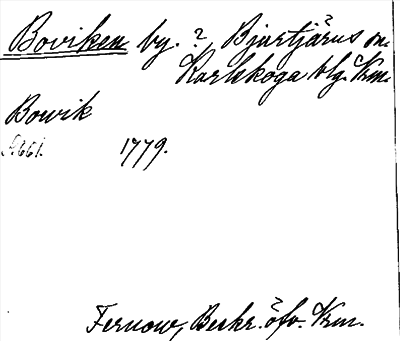 Boviken by. ? Bjurtjärns sn.
Karlskoga blg. Vrm.
Bowik
1779.
Fernow, Beskr. öfv. Vrm.